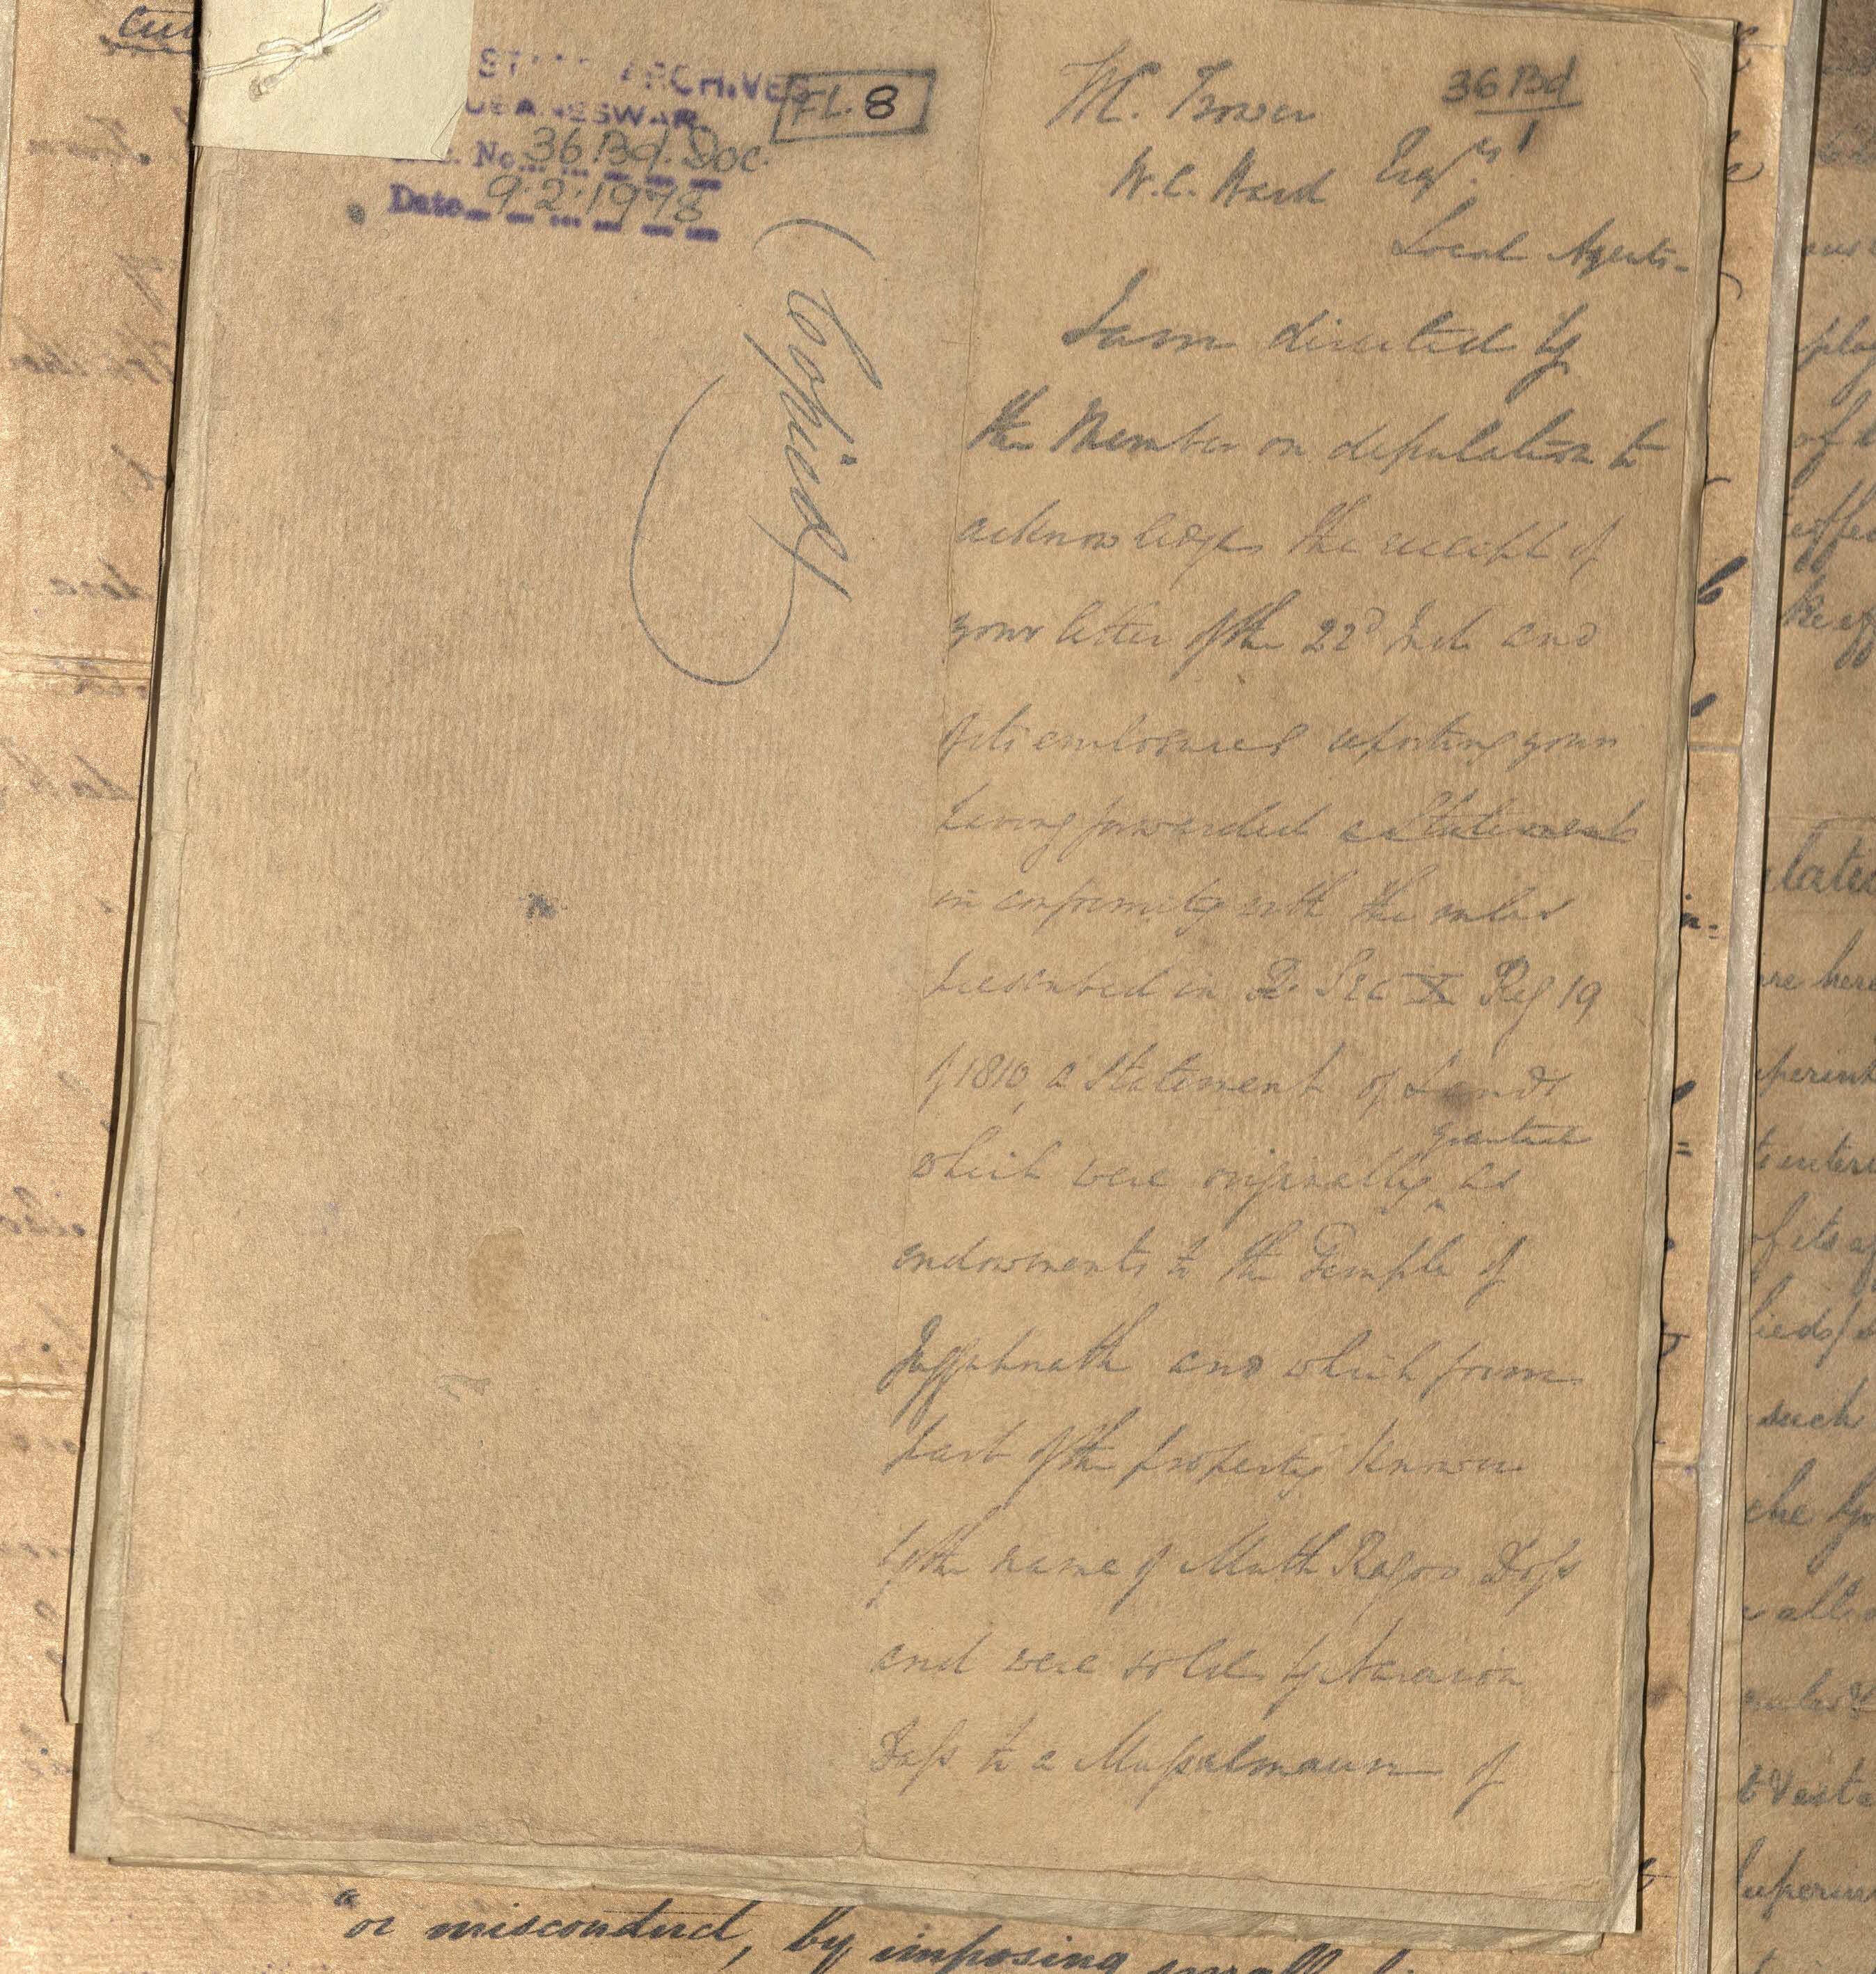 STATE ARCHIVES
UBANESWAR
No. 36 Bd. Doc.
Date 9.2.1978
FL. 8
36 Bd
1
Copied
W. Trower
W. C. Ward Esqrs
Local Agents.
I am directed by
the Member on deputation to
acknowledge the receipt of
your letter of the 22d Inst. and
of its enclosures reporting your
having forwarded a Statement
in conformity with the rules
prescribed in Sec X Reg 19
of 1810, a Statement of Lands
which were originally granted as
endowments to the Temple of
Juggutnath and which form
part of the property known
by the name of Muth Ragoo Doss
and were sold by Naraion
Dass to a Mussalmaun of
"or misconduct, by imposing small